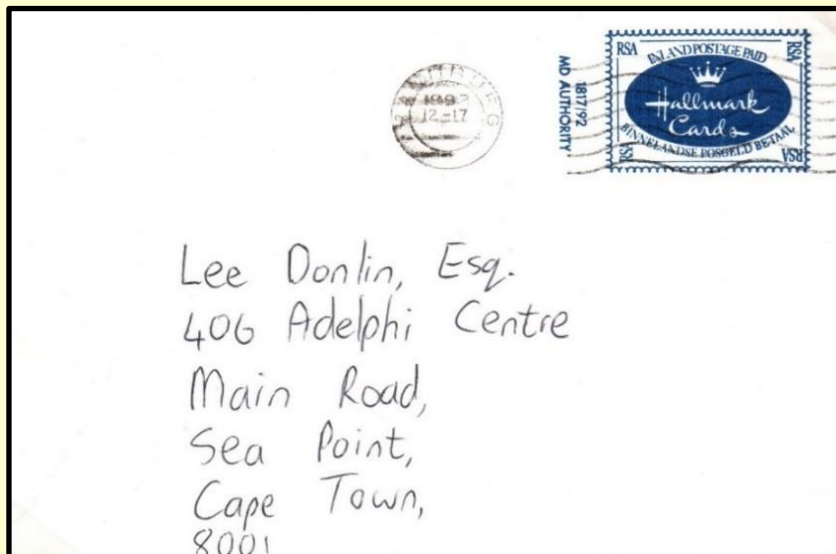 1992
12-17
MD AUTHORITY
1817/92
RSA
INLAND POSTAGE PAID
RSA
Hallmark
Cards
RSA
BINNELANDSE POSGELD BETAAL
RSA
Lee Donlin, Esq.
406 Adelphi Centre
Main Road,
Sea Point,
Cape Town,
8001